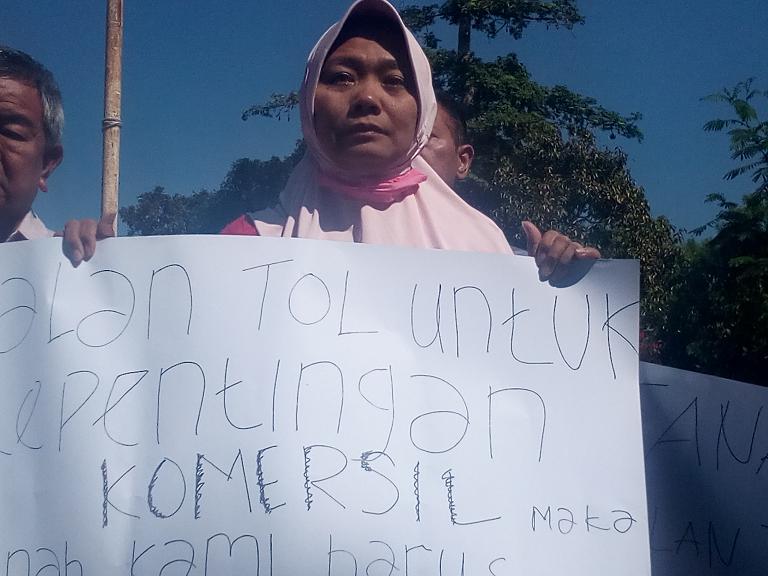 aLan TOL untUK
kepentingan
KOMERSIL Maka
nah kami harus
TANA
LAN T